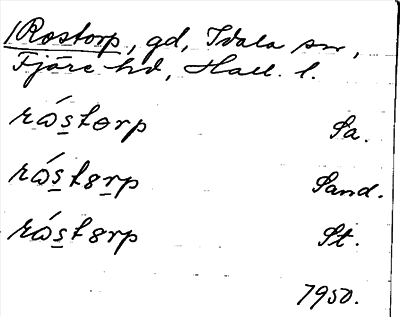 Rostorp, gd, Idala sn,
Fjäre hd, Hall. l.
rɷ́s̲tɵrp Sa.
rɷ́s̲tɞr̲p Sand.
rɷ́s̲tɞrp St.
1950.